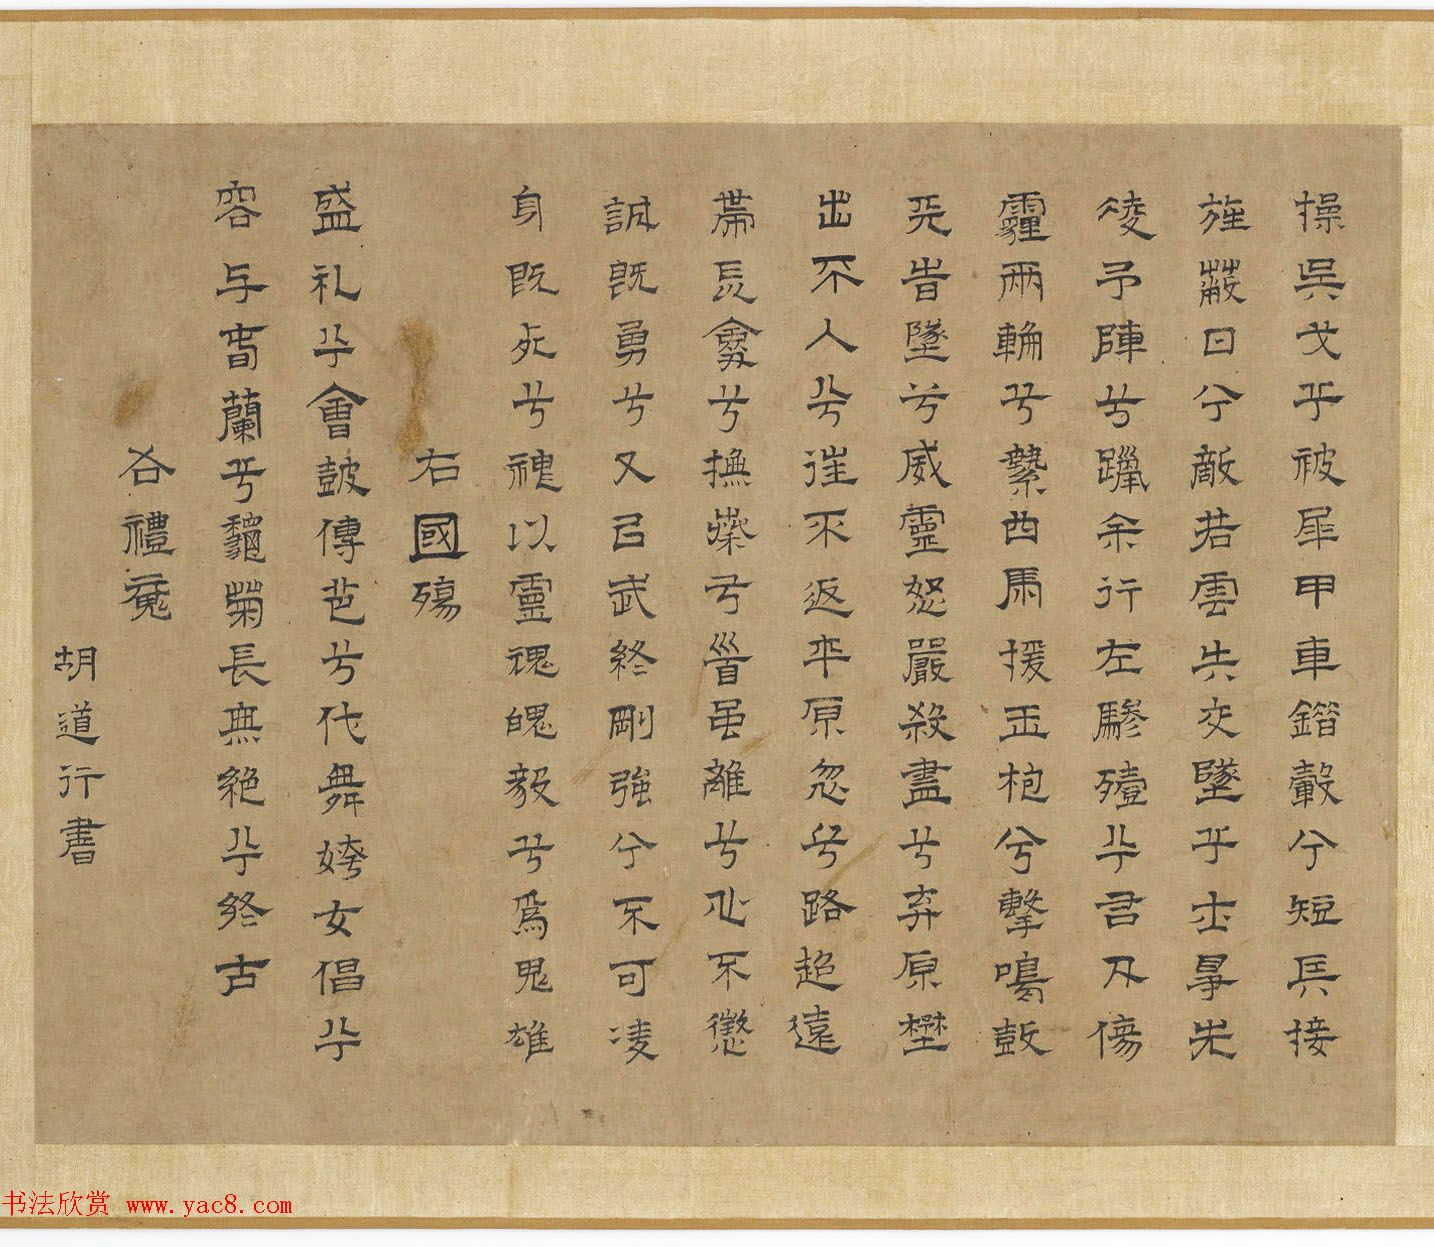 操吳戈兮被犀甲車錯轂兮短兵接
旌蔽日兮敵若雲矢交墜兮士爭先
凌予陣兮躐余行左驂殪兮右刃傷
霾兩輪兮縶四馬援玉枹兮擊鳴鼓
天時墜兮威靈怒嚴殺盡兮弃原壄
出不入兮往不返平原忽兮路超遠
帶長劍兮挾秦弓兮首雖離兮心不懲
誠既勇兮又以武終剛強兮不可凌
身既死兮神以靈魂魄毅兮為鬼雄
右國殤
盛礼兮會鼓傳芭兮代舞姱女倡兮
容与春蘭兮秋菊長無絕兮終古
右禮魂
胡道行書
书法欣赏 www.yac8.com